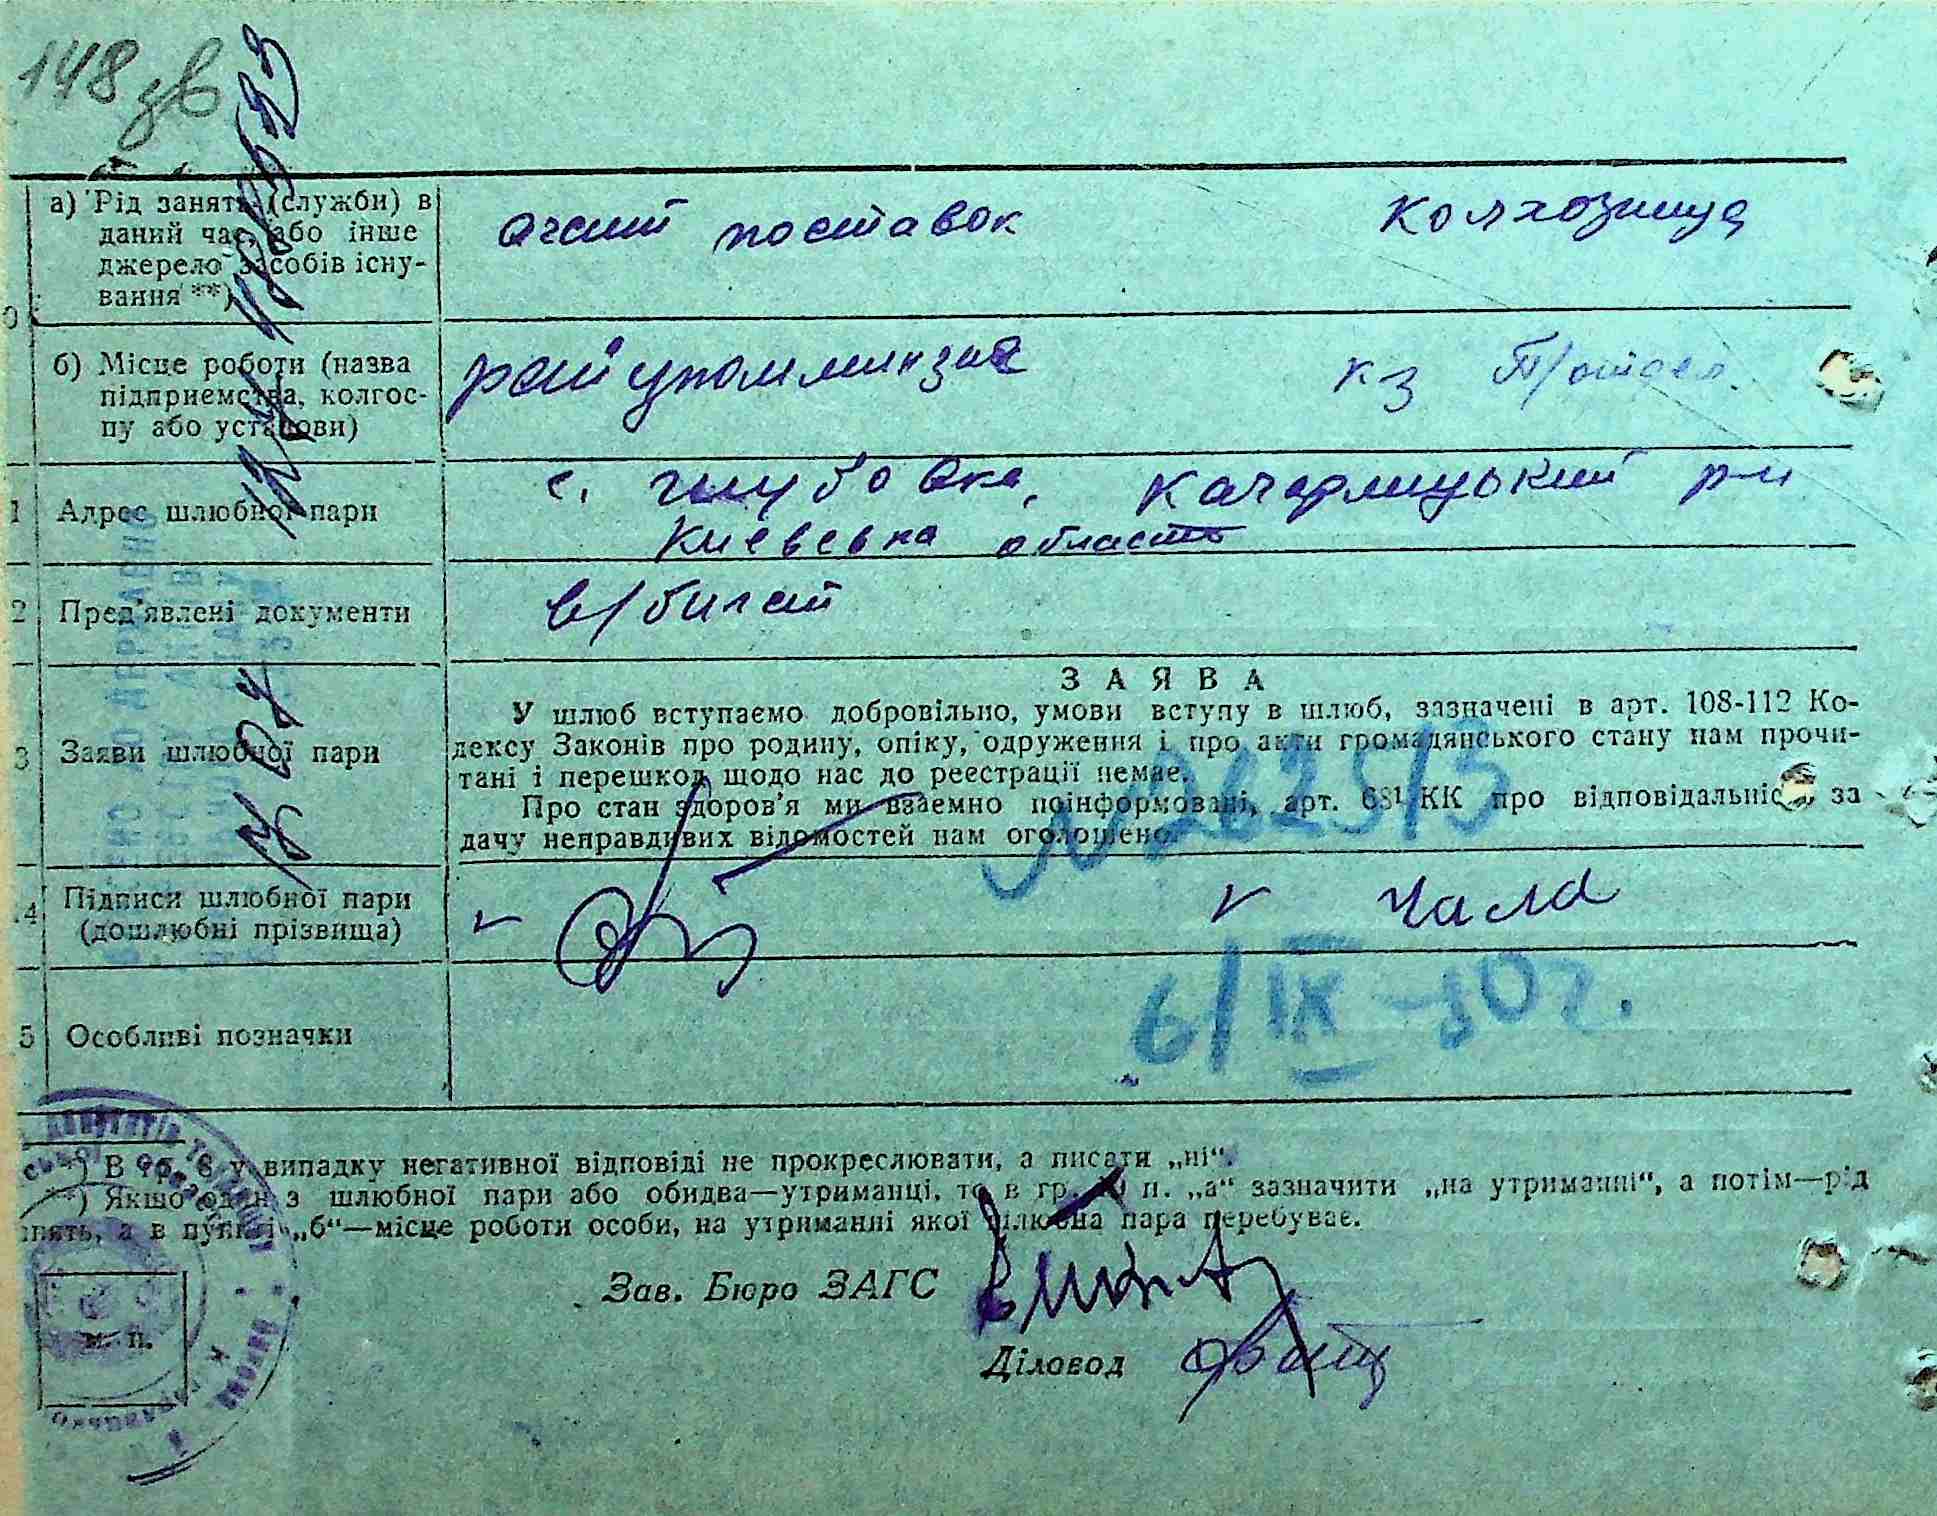 148 зв
а) Рід занять (служби) в
даний час, або інше
джерело засобів існу-
вання **)
агент поставок
колхозница
б) Місце роботи (назва
підприємства, колгос-
пу або установи)
райуполминзаг
кз
1 Адрес шлюбної пари
с. Голубовка, Кагарлицький р-н
Киевська область
2 Пред'явлені документи
в/билет
3 Заяви шлюбної пари
ЗАЯВА
У шлюб вступаємо добровільно, умови вступу в шлюб, зазначені в арт. 108-112 Ко-
дексу Законів про родину, опіку, одруження і про акти громадянського стану нам прочи-
тані і перешкод щодо нас до реестрації немає.
Про стан здоров'я ми взаємно поінформовані, арт. 68¹ КК про відповідальність за
дачу неправдивих відомостей нам оголошено.
№ 2625/3
4 Підписи шлюбної пари
(дошлюбні прізвища)
Чала
6/IX-50г.
5 Особливі позначки
*) В гр. 8 у випадку негативної відповіді не прокреслювати, а писати „ні“.
**) Якщо один з шлюбної пари або обидва—утриманці, то в гр. 10 п. „а“ зазначити „на утриманні“, а потім—рід
нять, а в пункті „б“—місце роботи особи, на утриманні якої шлюбна пара перебуває.
Зав. Бюро ЗАГС
Діловод
м. п.